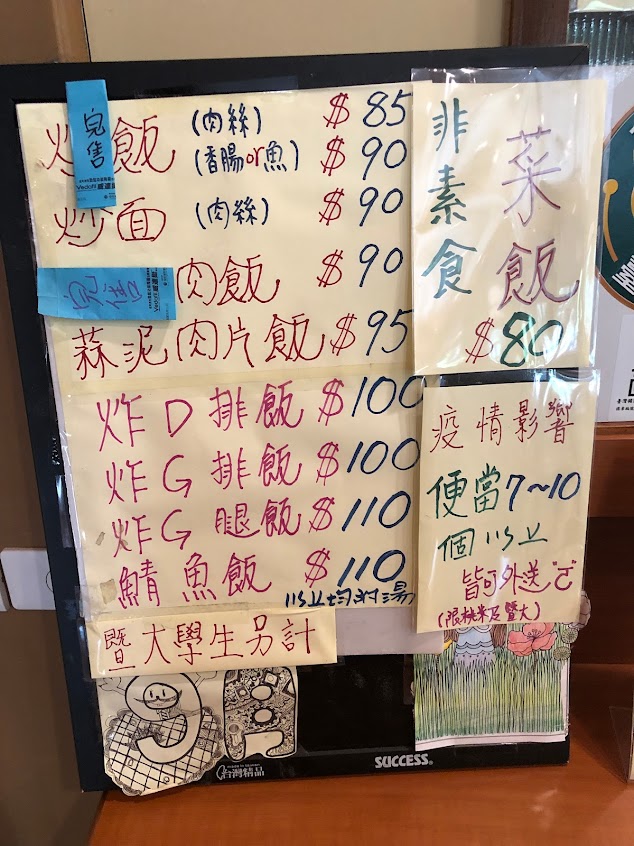 完售
炒飯 (肉絲) $85
(香腸or魚) $90
炒面 (肉絲) $90
完售
肉飯 $90
蒜泥肉片飯 $95
炸D排飯 $100
炸G排飯 $100
炸G腿飯 $110
鯖魚飯 $110
以上均附湯
暨大學生另計
非素食
菜飯
$80
疫情影響
便當7~10
個以上
皆可外送
(限桃米及暨大)
台灣精品
SUCCESS®